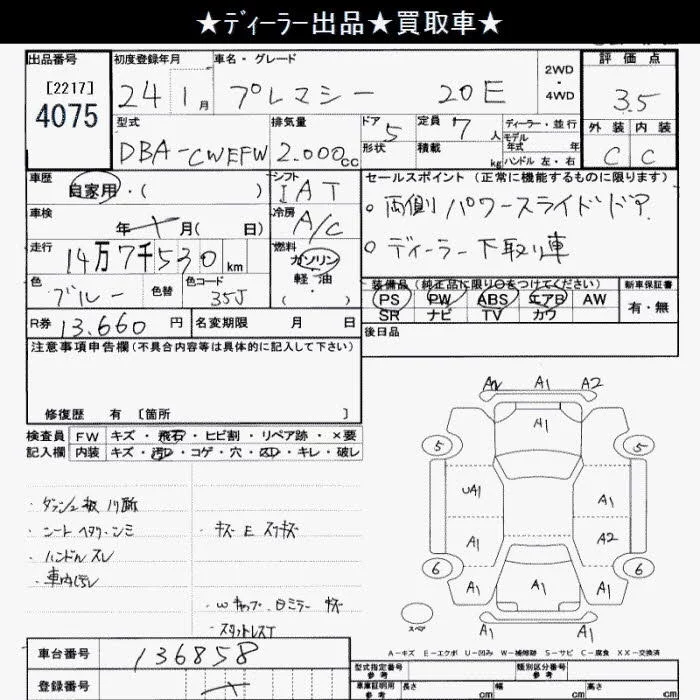 ★ディーラー出品★買取車★
出品番号 初度登録年月 車名・グレード 2WD・4WD 評価点
[2217] 4075 24 1月 プレマシー 20E 3.5
型式 排気量 ドア 形状 5 定員 7人 積載 kg ディーラー・並行 モデル年式 年 ハンドル 左・右 外装 内装
DBA-CWEFW 2.000cc C C
車歴 自家用・( ) シフト IAT セールスポイント(正常に機能するものに限ります)
車検 年 月( 日) 冷房 A/C 。両側パワースライドドア
走行 14万7千530km 燃料 ガソリン 軽油・( ) 。ディーラー下取り車
色 ブルー 色替 色コード 35J 装備品(純正品に限り○をつけてください) 新車保証書
PS PW ABS エアB AW 有・無
SR ナビ TV カワ
R券 13.660円 名変期限 月 日 後日品
注意事項申告欄(不具合内容等は具体的に記入して下さい)
修復歴 有 [箇所 ]
検査員 FW キズ・飛石・ヒビ割・リペア跡・×要
記入欄 内装 キズ・汚レ・コゲ・穴・スレ・キレ・破レ
A1 A2
A1
5 5
UA1 A1
A1 A2
6 6
A1 A1 A1
A1 A1
スペア
・ハンドル スレ
・キズ E スリキズ
A-キズ E-エクボ U-凹み W-補修跡 S-サビ C-腐食 XX-交換済
車台番号 136858
登録番号
型式指定番号 参考 類別区分番号 参考
車庫証明用 参考 長さ cm 幅 cm 高さ cm